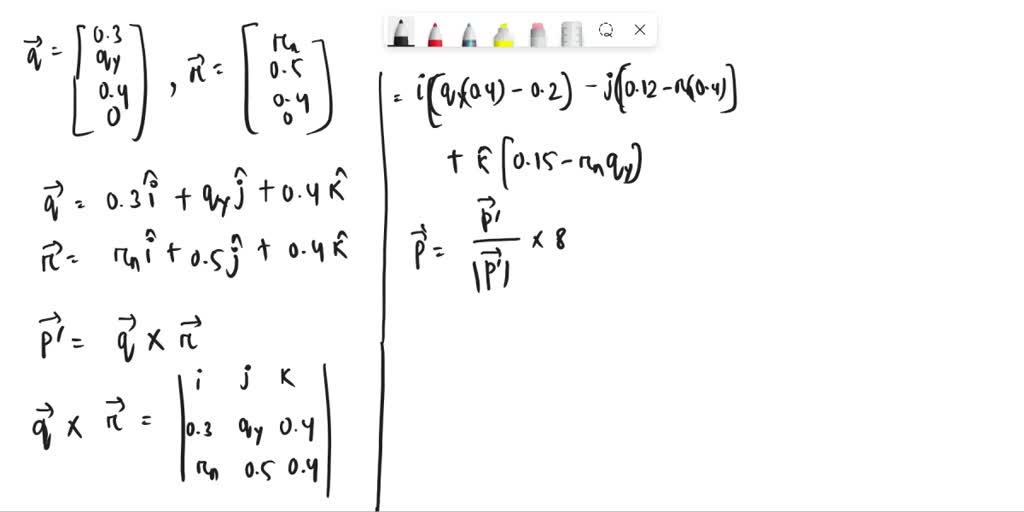 q⃗ = [0.3 qy 0.4 0], r⃗ = [rn 0.5 0.4 0]
q⃗ = 0.3 î + qy ĵ + 0.4 k̂
r⃗ = rn î + 0.5 ĵ + 0.4 k̂
p⃗' = q⃗ × r⃗
q⃗ × r⃗ = | i j k
0.3 qy 0.4
rn 0.5 0.4 |
= i(qy(0.4) - 0.2) - j[0.12 - rn(0.4)]
+ k̂ [0.15 - rn qy]
p⃗ = p⃗' / |p⃗'| × 8